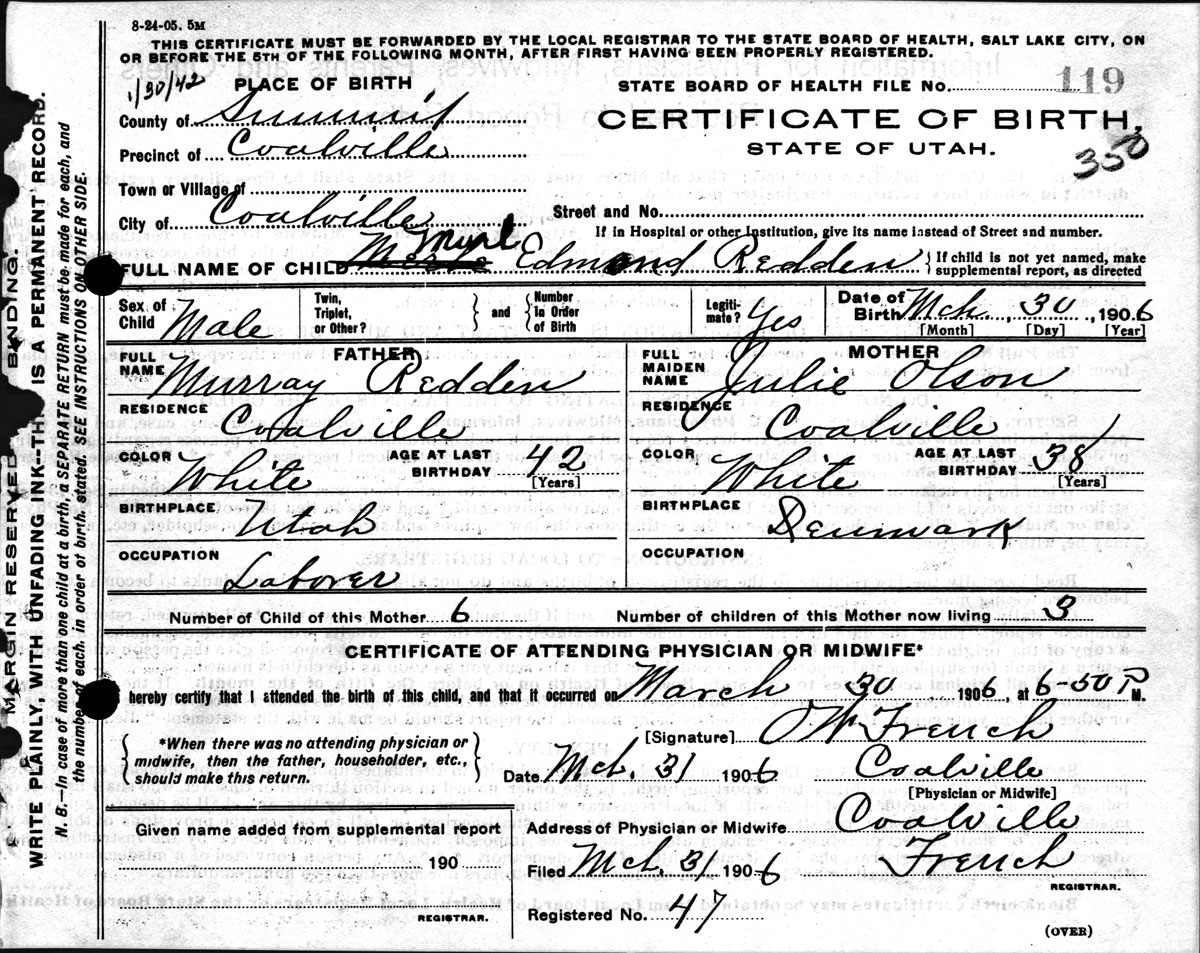 8-24-05. 5M
THIS CERTIFICATE MUST BE FORWARDED BY THE LOCAL REGISTRAR TO THE STATE BOARD OF HEALTH, SALT LAKE CITY, ON
OR BEFORE THE 5TH OF THE FOLLOWING MONTH, AFTER FIRST HAVING BEEN PROPERLY REGISTERED.
1/30/42
PLACE OF BIRTH
STATE BOARD OF HEALTH FILE NO. 119
County of Summit
CERTIFICATE OF BIRTH,
Precinct of Coalville
STATE OF UTAH.
350
Town or Village of
City of Coalville
Street and No.
If in Hospital or other Institution, give its name instead of Street and number.
FULL NAME OF CHILD Merle Myrl Edmond Redden
{ If child is not yet named, make
supplemental report, as directed
Sex of Child Male
Twin, Triplet, or Other?
and
Number In Order of Birth
Legiti-mate? Yes
Date of Birth Mch. 30, 1906
[Month] [Day] [Year]
FATHER
FULL NAME Murray Redden
MOTHER
FULL MAIDEN NAME Julie Olson
RESIDENCE Coalville
RESIDENCE Coalville
COLOR White
AGE AT LAST BIRTHDAY 42 [Years]
COLOR White
AGE AT LAST BIRTHDAY 38 [Years]
BIRTHPLACE Utah
BIRTHPLACE Denmark
OCCUPATION Laborer
OCCUPATION
Number of Child of this Mother 6
Number of children of this Mother now living 3
CERTIFICATE OF ATTENDING PHYSICIAN OR MIDWIFE*
hereby certify that I attended the birth of this child, and that it occurred on March 30 1906, at 6-50 P M.
*When there was no attending physician or
midwife, then the father, householder, etc.,
should make this return.
[Signature] O W French
Date Mch. 31 1906
Coalville
[Physician or Midwife]
Given name added from supplemental report
190
REGISTRAR.
Address of Physician or Midwife Coalville
Filed Mch. 31 1906
French
REGISTRAR.
Registered No. 47
(OVER)
MARGIN RESERVED BINDING.
WRITE PLAINLY, WITH UNFADING INK—TH IS A PERMANENT RECORD.
N. B.—In case of more than one child at a birth, a SEPARATE RETURN must be made for each, and
the number of each, in order of birth, stated. SEE INSTRUCTIONS ON OTHER SIDE.